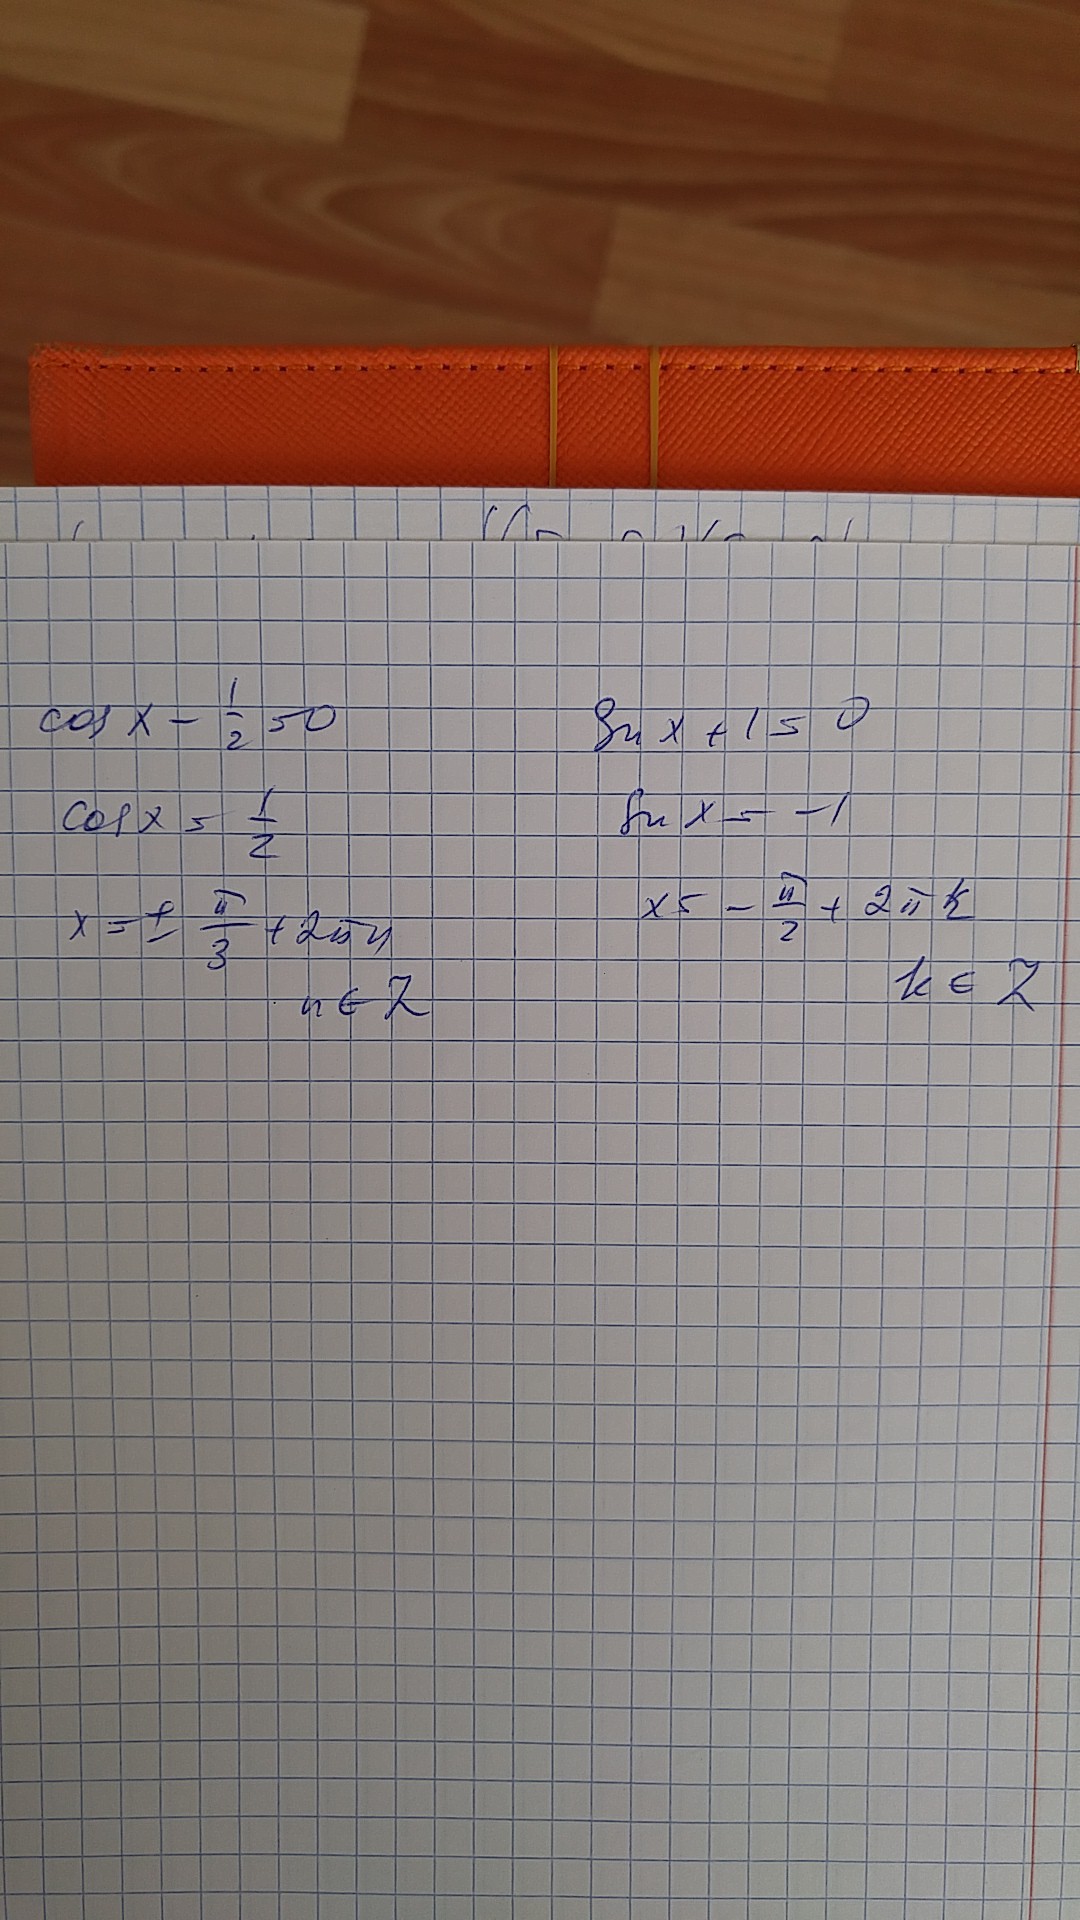 cos x - 1/2 = 0
cos x = 1/2
x = ± π/3 + 2πn
n ∈ Z
sin x + 1 = 0
sin x = -1
x = - π/2 + 2πk
k ∈ Z